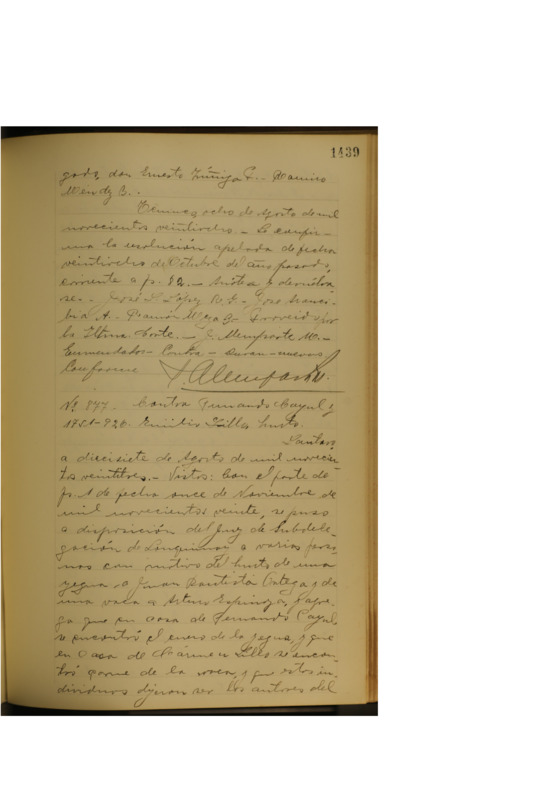 1439
gado, don Ernesto Zúñiga F.- Ramiro
Mendez B..
Temuco, ocho de Agosto de mil
novecientos veintitres.- Se confir-
ma la resolución apelada de fecha
veintitres de Octubre del año pasado,
corriente a fs. 82.- Anótese y devuélva-
se.- José L. López - José
A. Ramón Meza - Proveido por
la Iltma Corte.- J. Alemparte M.-
Enmendados- Contra -
Conforme J. Alemparte M.
Nº 847. Contra Fernando Cayul y
1751-920. Emilio Lillo hurto.
Lautaro,
a diecisiete de Agosto de mil novecien-
tos veintitres.- Vistos: Con el parte de
fs. 1 de fecha once de Noviembre de
mil novecientos veinte, se puso
a disposición del Juez de Subdele-
gación de Lonquimay a varias perso-
nas con motivo del hurto de una
yegua, a Juan Bautista Ortega y de
una vaca a Arturo Espinoza, y agre-
ga que en casa de Fernando Cayul
se encontró el cuero de la yegua, y que
en casa de Cármen Lillo se encon-
tró carne de la vaca, y que estos in-
dividuos dijeron ser los autores del